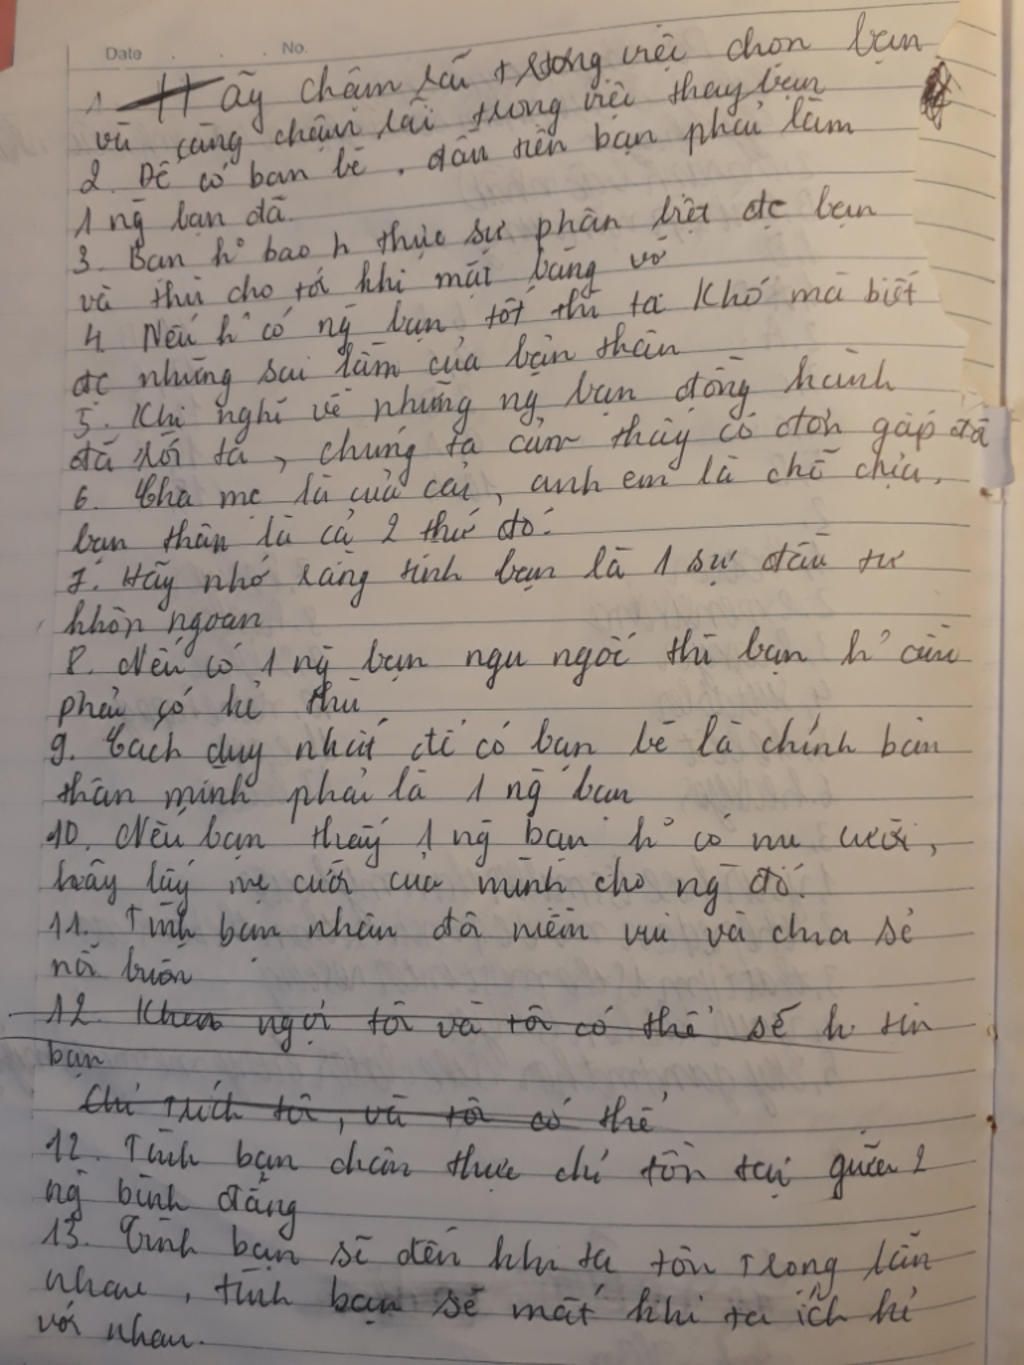 Date . . . No.
1 Hãy chậm rãi trong việc chọn bạn
và càng chậm rãi trong việc thay bạn
2. Để có bạn bè, đầu tiên bạn phải làm
1 ng bạn đã.
3. Bạn ho bao h thực sự phân biệt đc bạn
và thù cho tới khi mặt băng vỡ
4. Nếu ho có ng bạn tốt thì ta khó mà biết
đc những sai lầm của bản thân
5. Khi nghĩ về những ng bạn đồng hành
đã rời ta, chúng ta cảm thấy cô đơn gấp đô
6. Cha mẹ là của cải, anh em là chỗ chịu,
bạn thân là cả 2 thứ đó.
7. Hãy nhớ rằng tình bạn là 1 sự đầu tư
khôn ngoan
8. Nếu có 1 ng bạn ngu ngốc thì bạn ho cần
phải có kẻ thù
9. Cách duy nhất để có bạn bè là chính bản
thân mình phải là 1 ng bạn
10. Nếu bạn thấy 1 ng bạn ho có nụ cười,
hãy lấy nụ cười của mình cho ng đó.
11. Tình bạn nhân đôi niềm vui và chia sẻ
nỗi buồn
12. Khen ngợi tôi và tôi có thể sẽ h tin
bạn
Chỉ trích tôi, và tôi có thể
12. Tình bạn chân thực chỉ tồn tại giữa 2
ng bình đẳng
13. Tình bạn sẽ đến khi ta tôn trọng lẫn
nhau, tình bạn sẽ mất khi ta ích kỉ
với nhau.